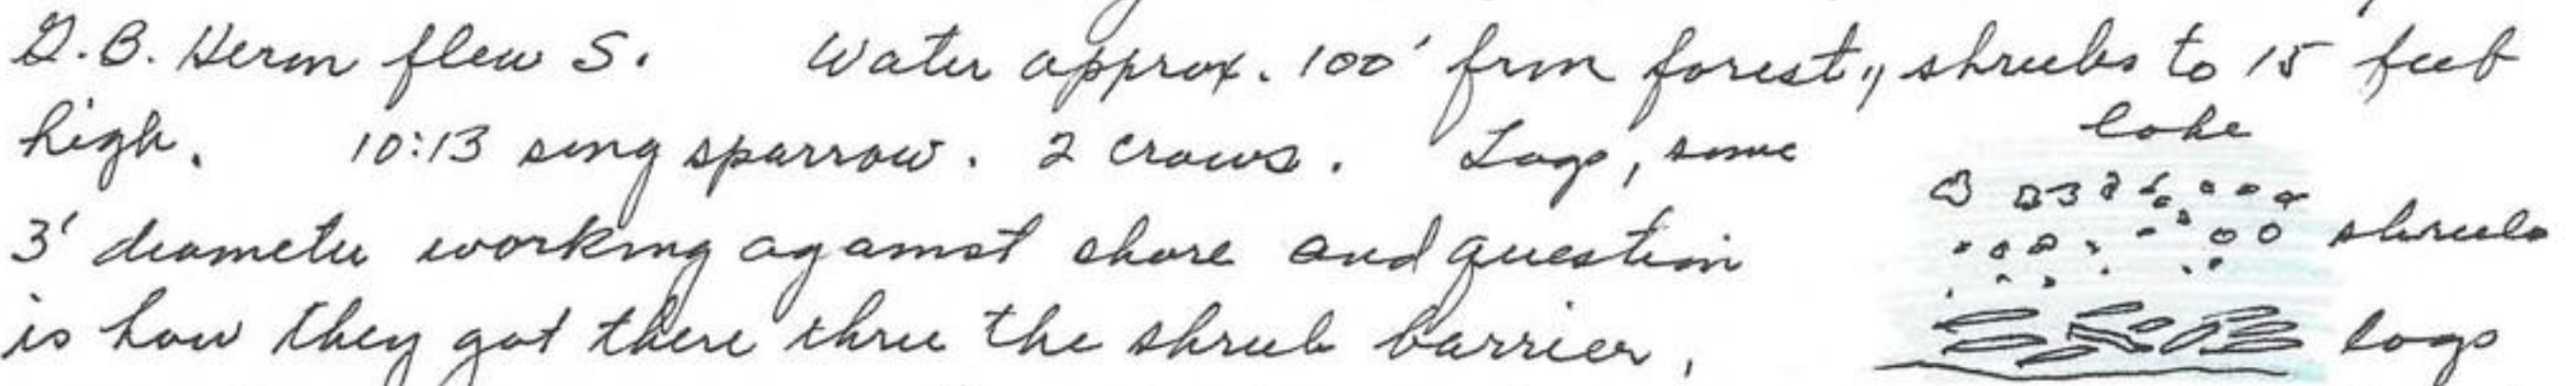 G.B. Heron flew S. Water approx. 100' from forest, shrubs to 15 feet
high. 10:13 song sparrow. 2 crows. Logs, some
lake
3' diameter working against shore and question
shrubs
is how they got there thru the shrub barrier.
logs